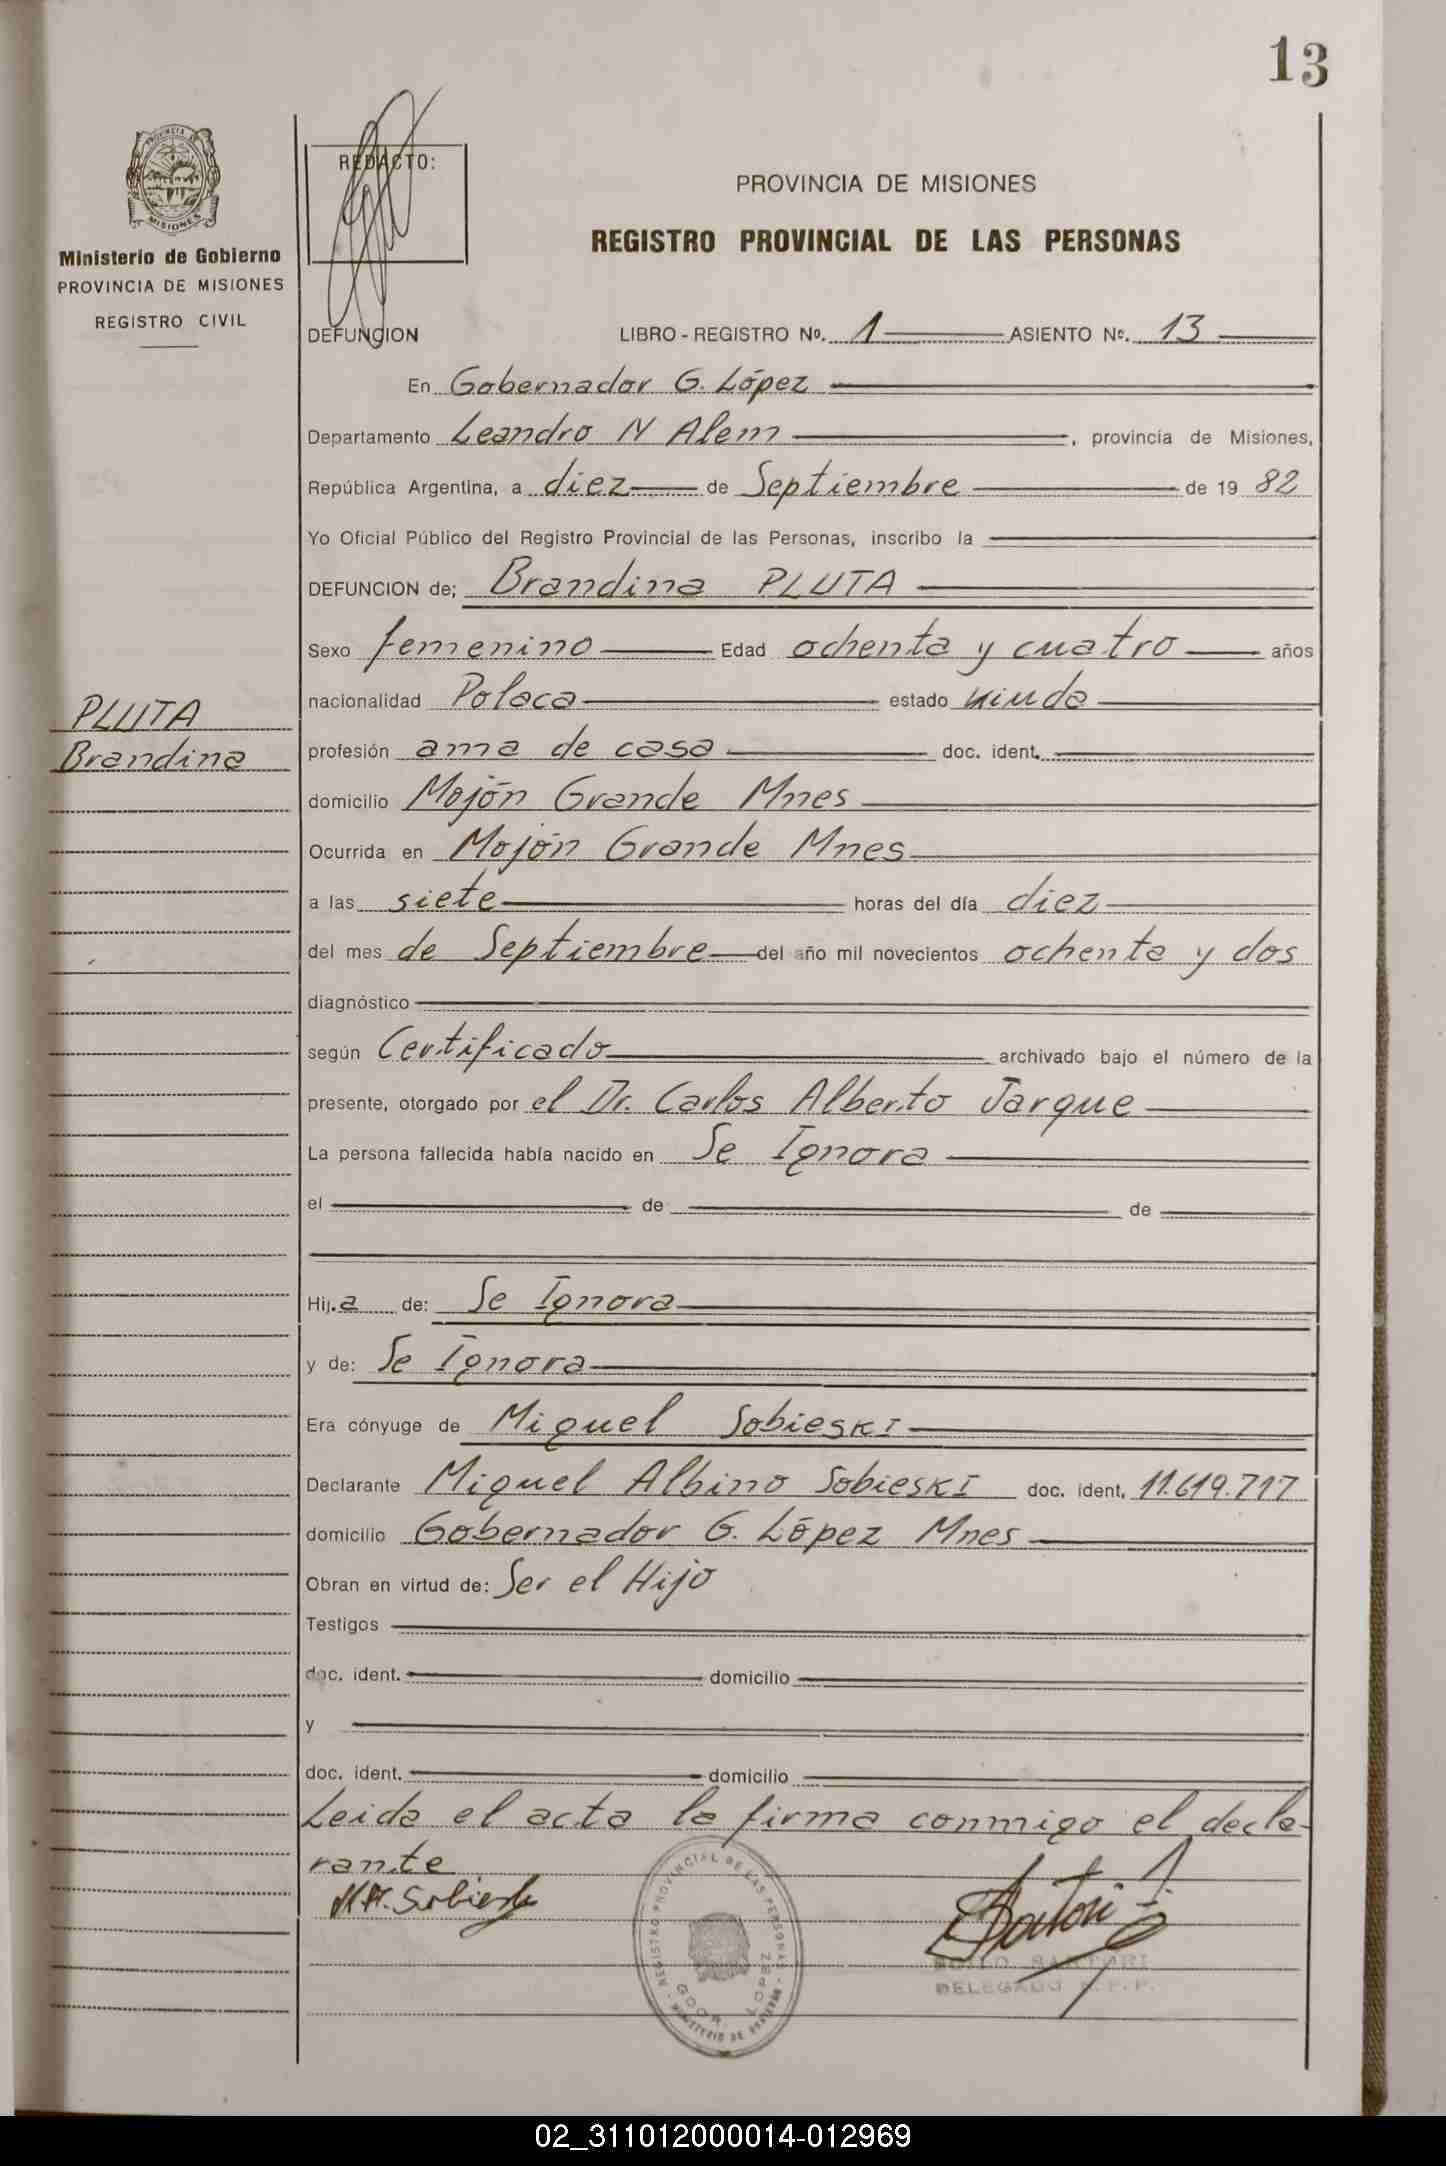 13
PROVINCIA DE
MISIONES
Ministerio de Gobierno
PROVINCIA DE MISIONES
REGISTRO CIVIL
REDACTO:
PROVINCIA DE MISIONES
REGISTRO PROVINCIAL DE LAS PERSONAS
DEFUNCION LIBRO - REGISTRO Nº. 1 ASIENTO Nº. 13
En Gobernador G. López
Departamento Leandro N Alem, provincia de Misiones,
República Argentina, a diez de Septiembre de 19 82
Yo Oficial Público del Registro Provincial de las Personas, inscribo la
DEFUNCION de; Brandina PLUTA
Sexo femenino Edad ochenta y cuatro años
nacionalidad Polaca estado viuda
PLUTA
Brandina
profesión ama de casa doc. ident.
domicilio Mojón Grande Mnes
Ocurrida en Mojón Grande Mnes
a las siete horas del día diez
del mes de Septiembre del año mil novecientos ochenta y dos
diagnóstico
según Certificado archivado bajo el número de la
presente, otorgado por el Dr. Carlos Alberto Jarque
La persona fallecida había nacido en Se Ignora
el de de
Hij.a de: Se Ignora
y de: Se Ignora
Era cónyuge de Miguel SobiesKI
Declarante Miguel Albino SobiesKI doc. ident. 11.619.717
domicilio Gobernador G. López Mnes
Obran en virtud de: Ser el Hijo
Testigos
doc. ident. domicilio
y
doc. ident. domicilio
Leida el acta la firma conmigo el decla-
rante
M.A. Sobieski
REGISTRO PROVINCIAL DE LAS PERSONAS
GDOR. LOPEZ
MINISTERIO DE GOBIERNO
SARTORI
DELEGADO R.P.P.
02_311012000014-012969